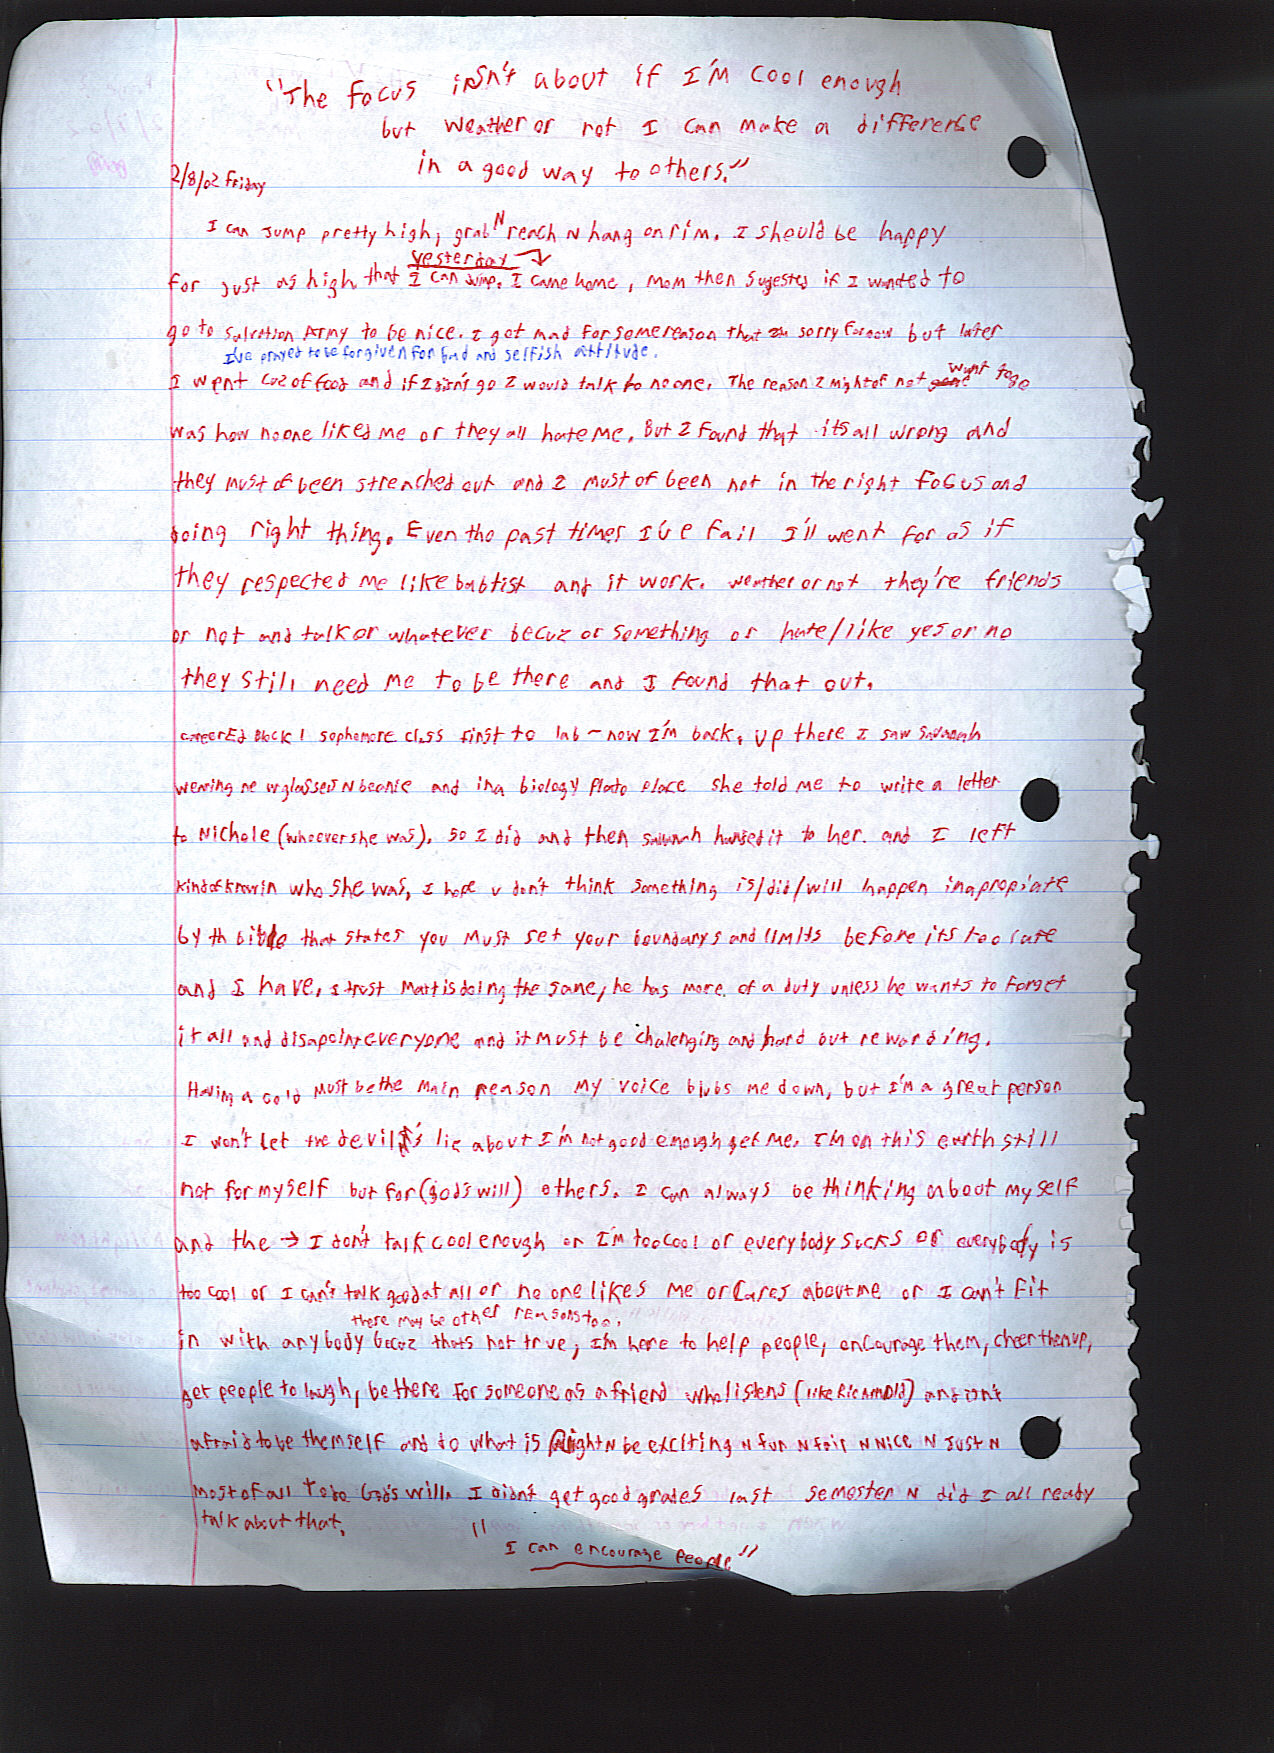 "The focus isn't about if I'm cool enough
but weather or not I can make a difference
in a good way to others."
2/8/02 Friday
I can jump pretty high, grab N reach N hang on rim. I should be happy
yesterday
for just as high that I can jump. I came home, mom then sugested if I wanted to
go to Salvation Army to be nice. I got mad for some reason that Im sorry for now but later
I've prayed to be forgiven for bad and selfish attitude.
I went cuz of food and if I didn't go I would talk to no one. The reason I might of not gone want to go
was how no one liked me or they all hate me. But I found that its all wrong and
they must of been streached out and I must of been not in the right focus and
doing right thing. Even tho past times I've fail I'll went for as if
they respected me like babtist and it work. weather or not they're friends
or not and talk or whatever becuz or something or hate/like yes or no
they still need me to be there and I found that out.
career Ed Block 1 sophomore class first to lab - now I'm back, up there I saw Savannah
wearing new glasses N beanie and in a biology plato place she told me to write a letter
to Nichole (whoever she was), so I did and then savannah handed it to her. and I left
kind of knowin who she was, I hope u don't think something is/did/will happen inapropiate
by th bible that states you must set your boundarys and limits before its too late
and I have, I trust Matt is doing the same, he has more of a duty unless he wants to forget
it all and disapoint everyone and it must be chalenging and hard but rewarding.
Having a cold must be the main reason my voice blubs me down, but I'm a great person
I won't let the devil's lie about I'm not good enough get me. I'm on this earth still
not for myself but for (god's will) others. I can always be thinking about myself
and the → I don't talk cool enough or I'm too cool or everybody sucks or everybody is
too cool or I can't talk good at all or no one likes me or cares about me or I can't fit
there may be other reasons too.
in with anybody becuz thats not true, I'm here to help people, encourage them, cheer them up,
get people to laugh, be there for someone as a friend who listens (like Ric Arnold) and isn't
afraid to be themself and do what is Right N be exciting N fun N fair N Nice N Just N
most of all to do God's will. I didnt get good grades last semester N did I all ready
talk about that.
"I can encourage people"